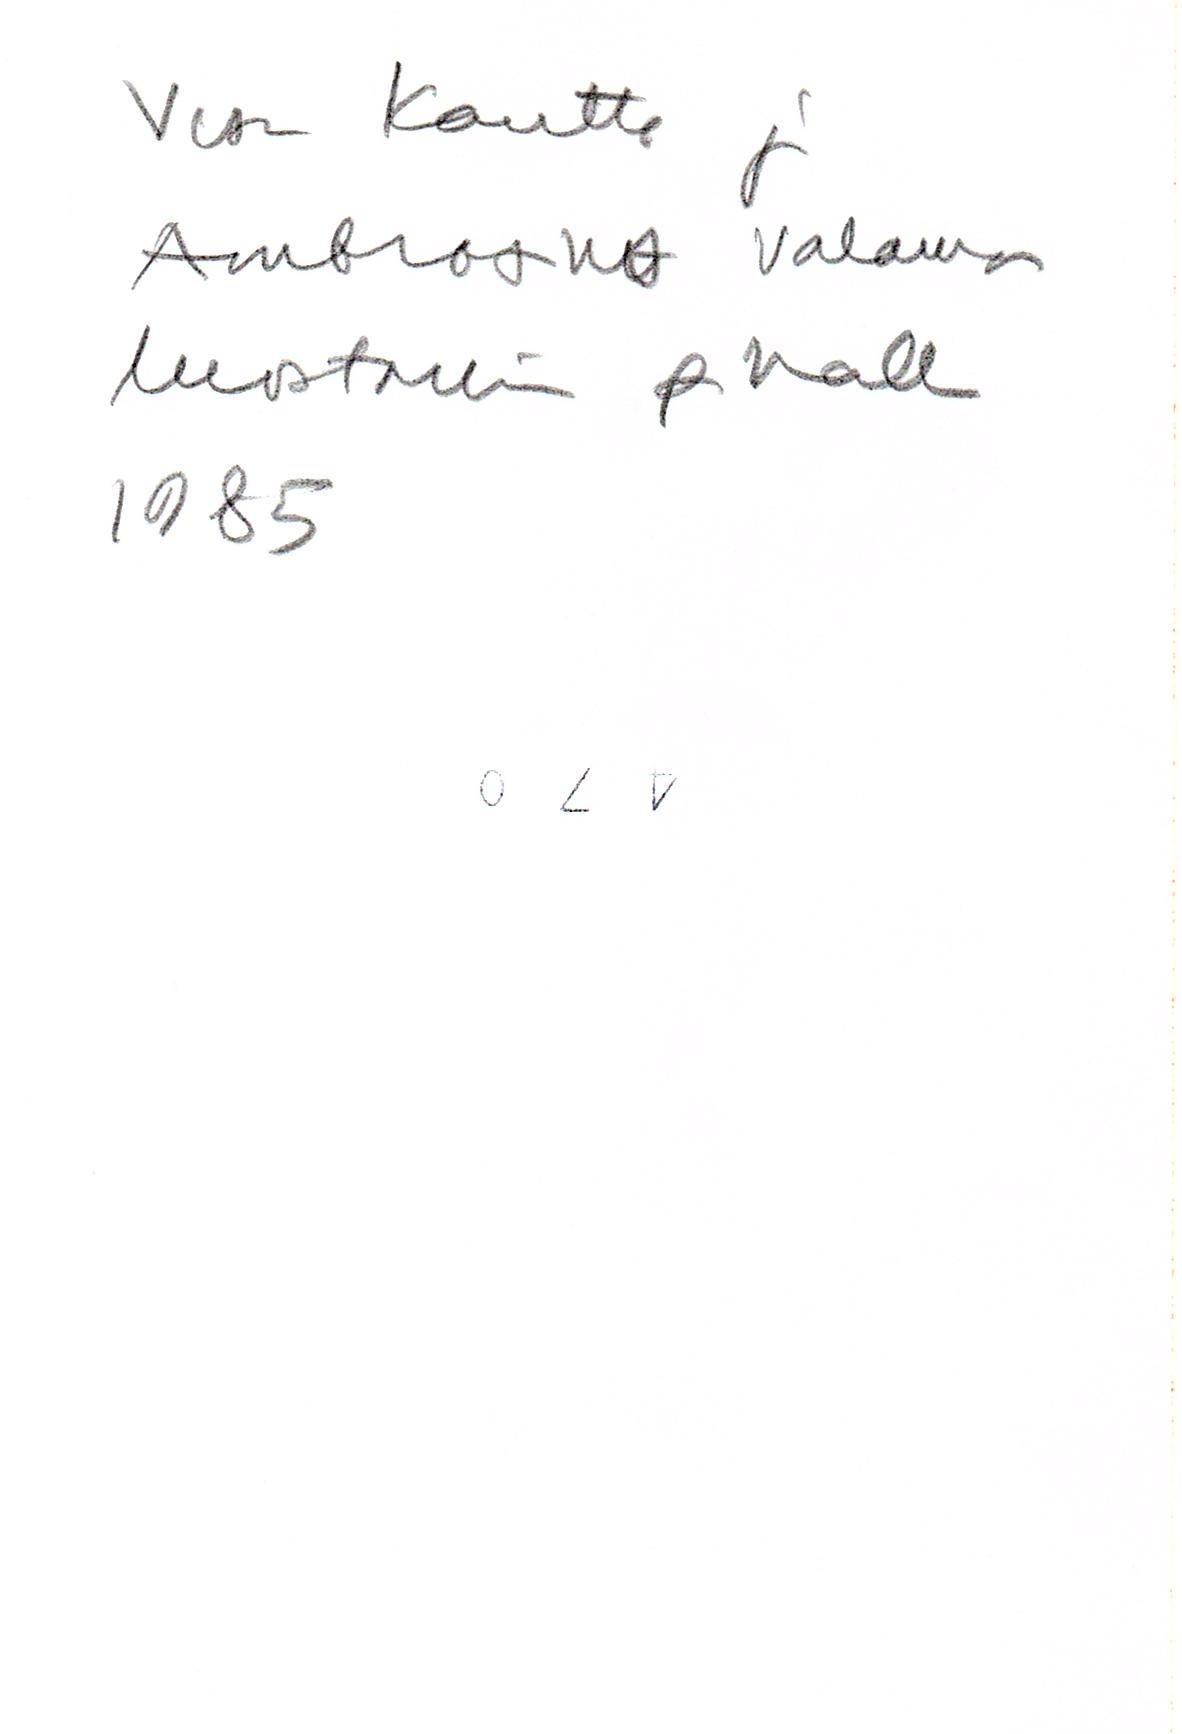 Kautto ja
Ambrosius Valamon
luostarin pihalla
1985
4 7 0